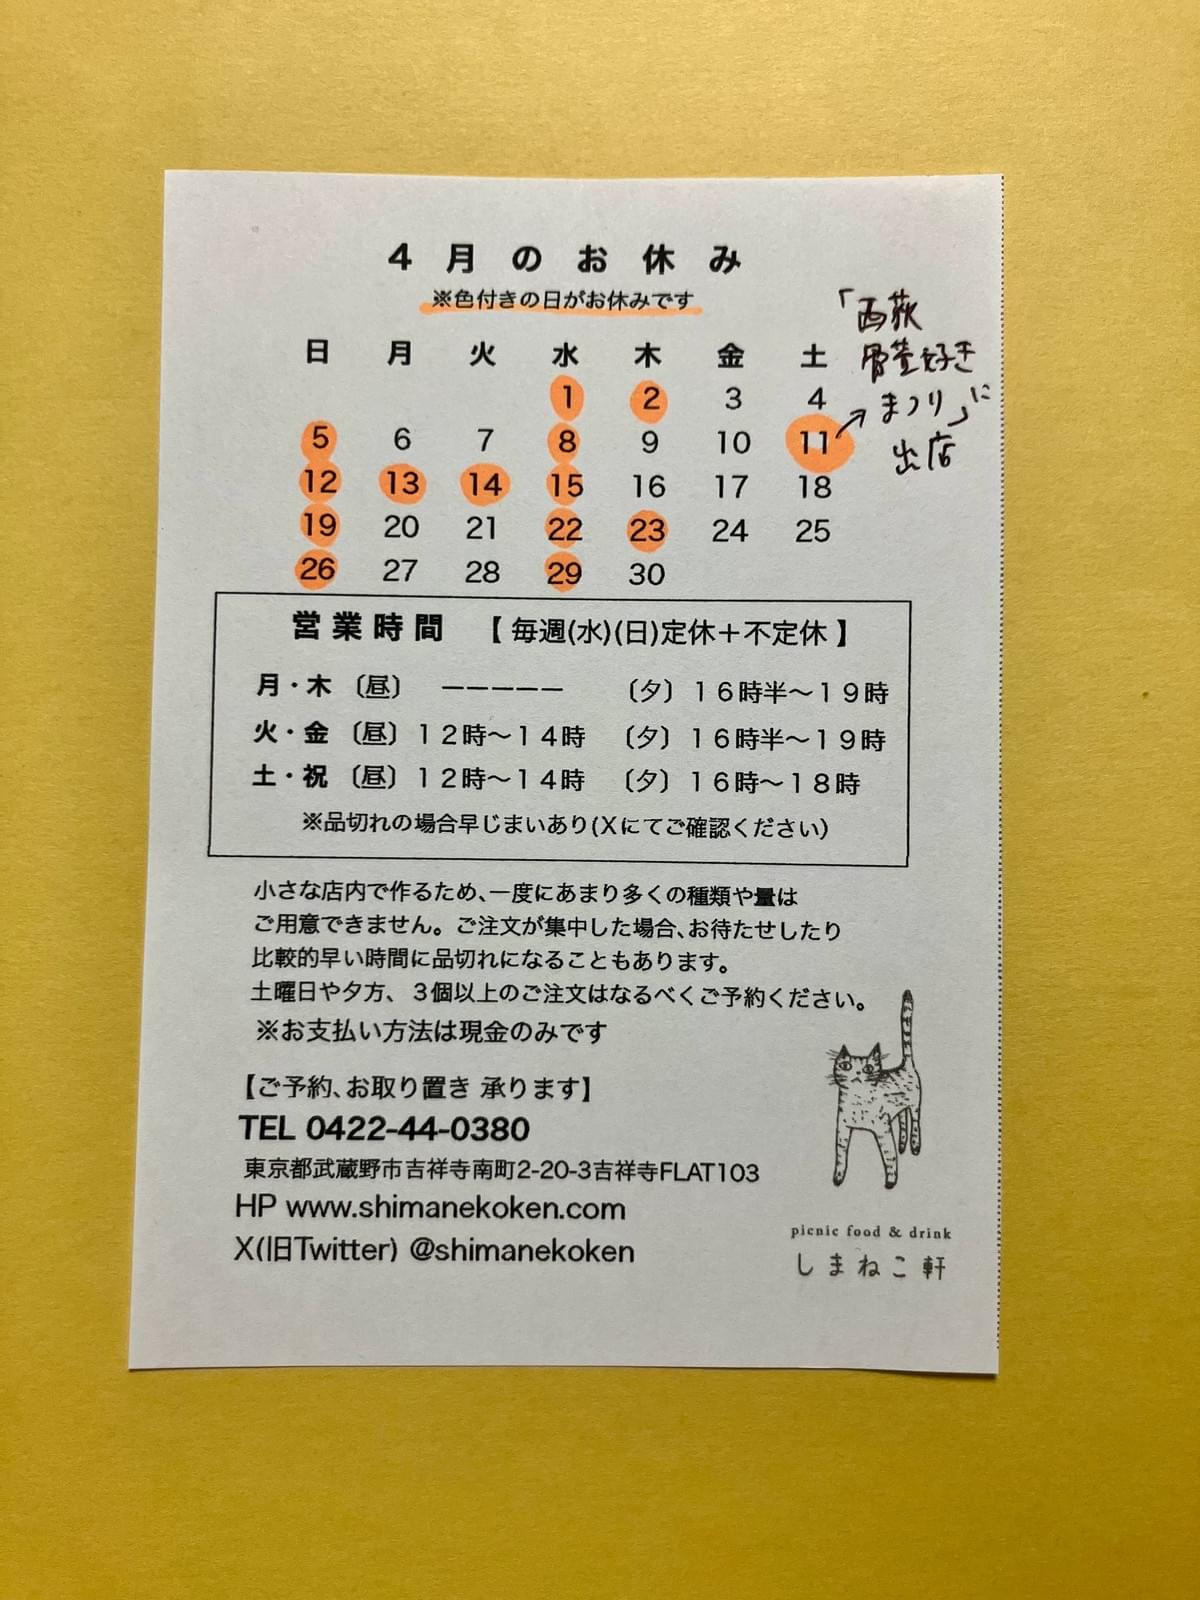 4月のお休み
※色付きの日がお休みです
日 月 火 水 木 金 土
1 2 3 4
5 6 7 8 9 10 11
12 13 14 15 16 17 18
19 20 21 22 23 24 25
26 27 28 29 30
「西荻
骨董好き
まつり」に
出店
営業時間 【毎週(水)(日)定休＋不定休】
月・木 〔昼〕 ーーーーー 〔夕〕16時半〜19時
火・金 〔昼〕12時〜14時 〔夕〕16時半〜19時
土・祝 〔昼〕12時〜14時 〔夕〕16時〜18時
※品切れの場合早じまいあり(Xにてご確認ください)
小さな店内で作るため、一度にあまり多くの種類や量は
ご用意できません。ご注文が集中した場合、お待たせしたり
比較的早い時間に品切れになることもあります。
土曜日や夕方、3個以上のご注文はなるべくご予約ください。
※お支払い方法は現金のみです
【ご予約、お取り置き 承ります】
TEL 0422-44-0380
東京都武蔵野市吉祥寺南町2-20-3吉祥寺FLAT103
HP www.shimanekoken.com
X(旧Twitter) @shimanekoken
picnic food & drink
しまねこ軒